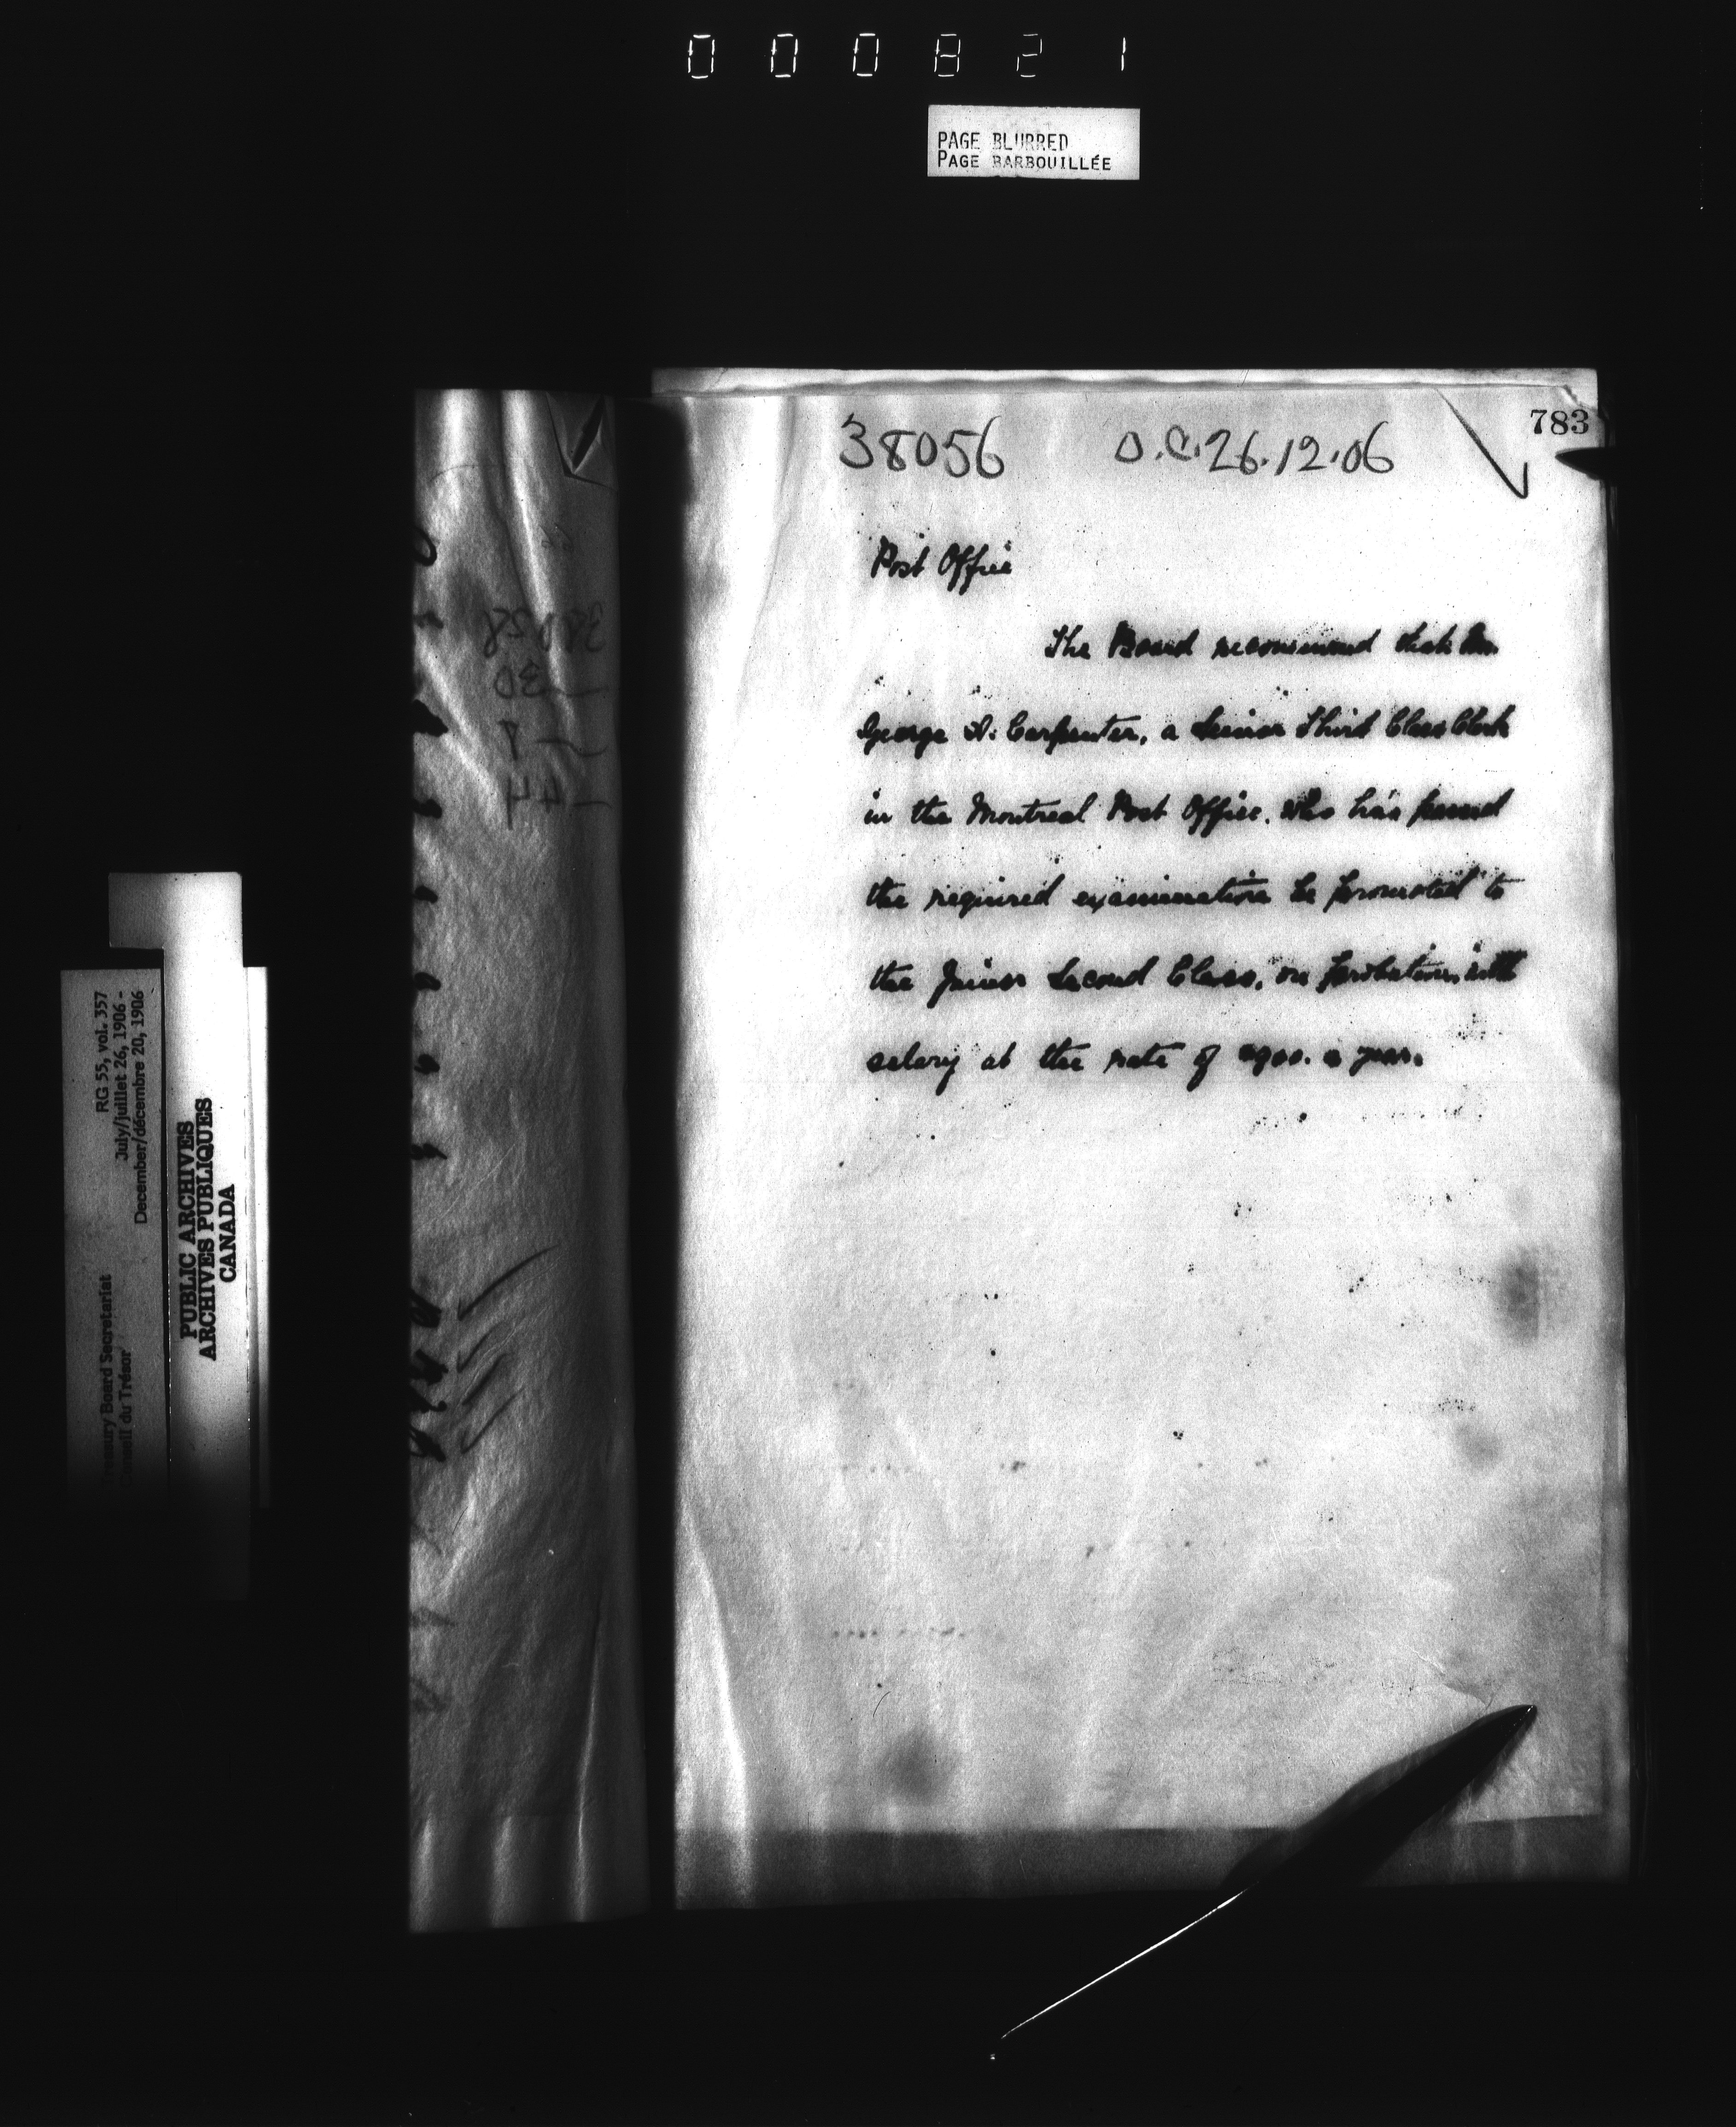 000821
PAGE BLURRED
PAGE BARBOUILLÉE
783
38056 O.C. 26.12.06
Post Office
The Board recommend that Mr.
George A. Carpenter, a Senior Third Class Clerk
in the Montreal Post Office, who has passed
the required examination be promoted to
the Junior Second Class, on probation, with
salary at the rate of $900. a year.
38058
30
44
RG 55, vol. 357
July/juillet 26, 1906 -
December/décembre 20, 1906
Treasury Board Secretariat
Conseil du Trésor
PUBLIC ARCHIVES
ARCHIVES PUBLIQUES
CANADA